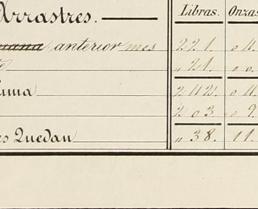 Arrastres. Libras. Onzas
anterior mes 221. „ 11.
„ 21. „ 0.
uma 242. „ 11.
203. „ 9.
es Quedan „ 38. 11.